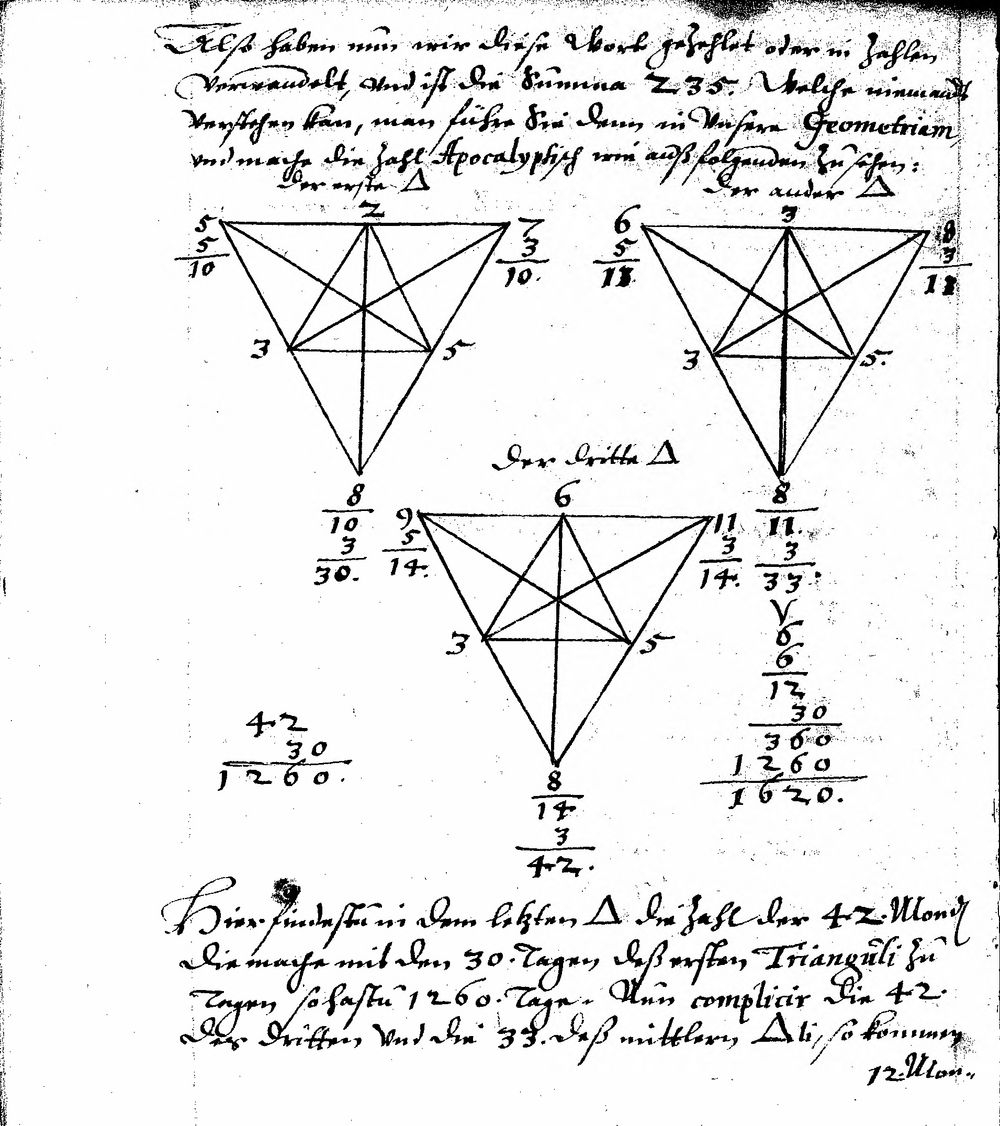 Also haben nun wir diese Wort gezehlet oder in Zahlen
verwandelt, und ist die Summa 235. Welche niemandt
verstehen kan, man führe Sie dann in Unsere Geometriam,
und mache die Zahl Apocalyptisch wie auß folgenden zu sehen:
der erste Δ
der ander Δ
5 2 7
5 3
10 10.
3 5
8
10
3
30.
6 3 8
5 3
11 11
3 5.
8
11.
3
33.
V
6
6
12
30
360
1260
1620.
der dritte Δ
9 6 11
5 3
14. 14.
3 5
8
14
3
42.
42
30
1260.
Hier findestu in dem letzten Δ die Zahl der 42. Mond
die mache mit den 30. Tagen deß ersten Trianguli zu
Tagen so hastu 1260. Tage. Nun complicir die 42.
des dritten und die 33. deß mittlern Δli, so kommen
12. Mon.